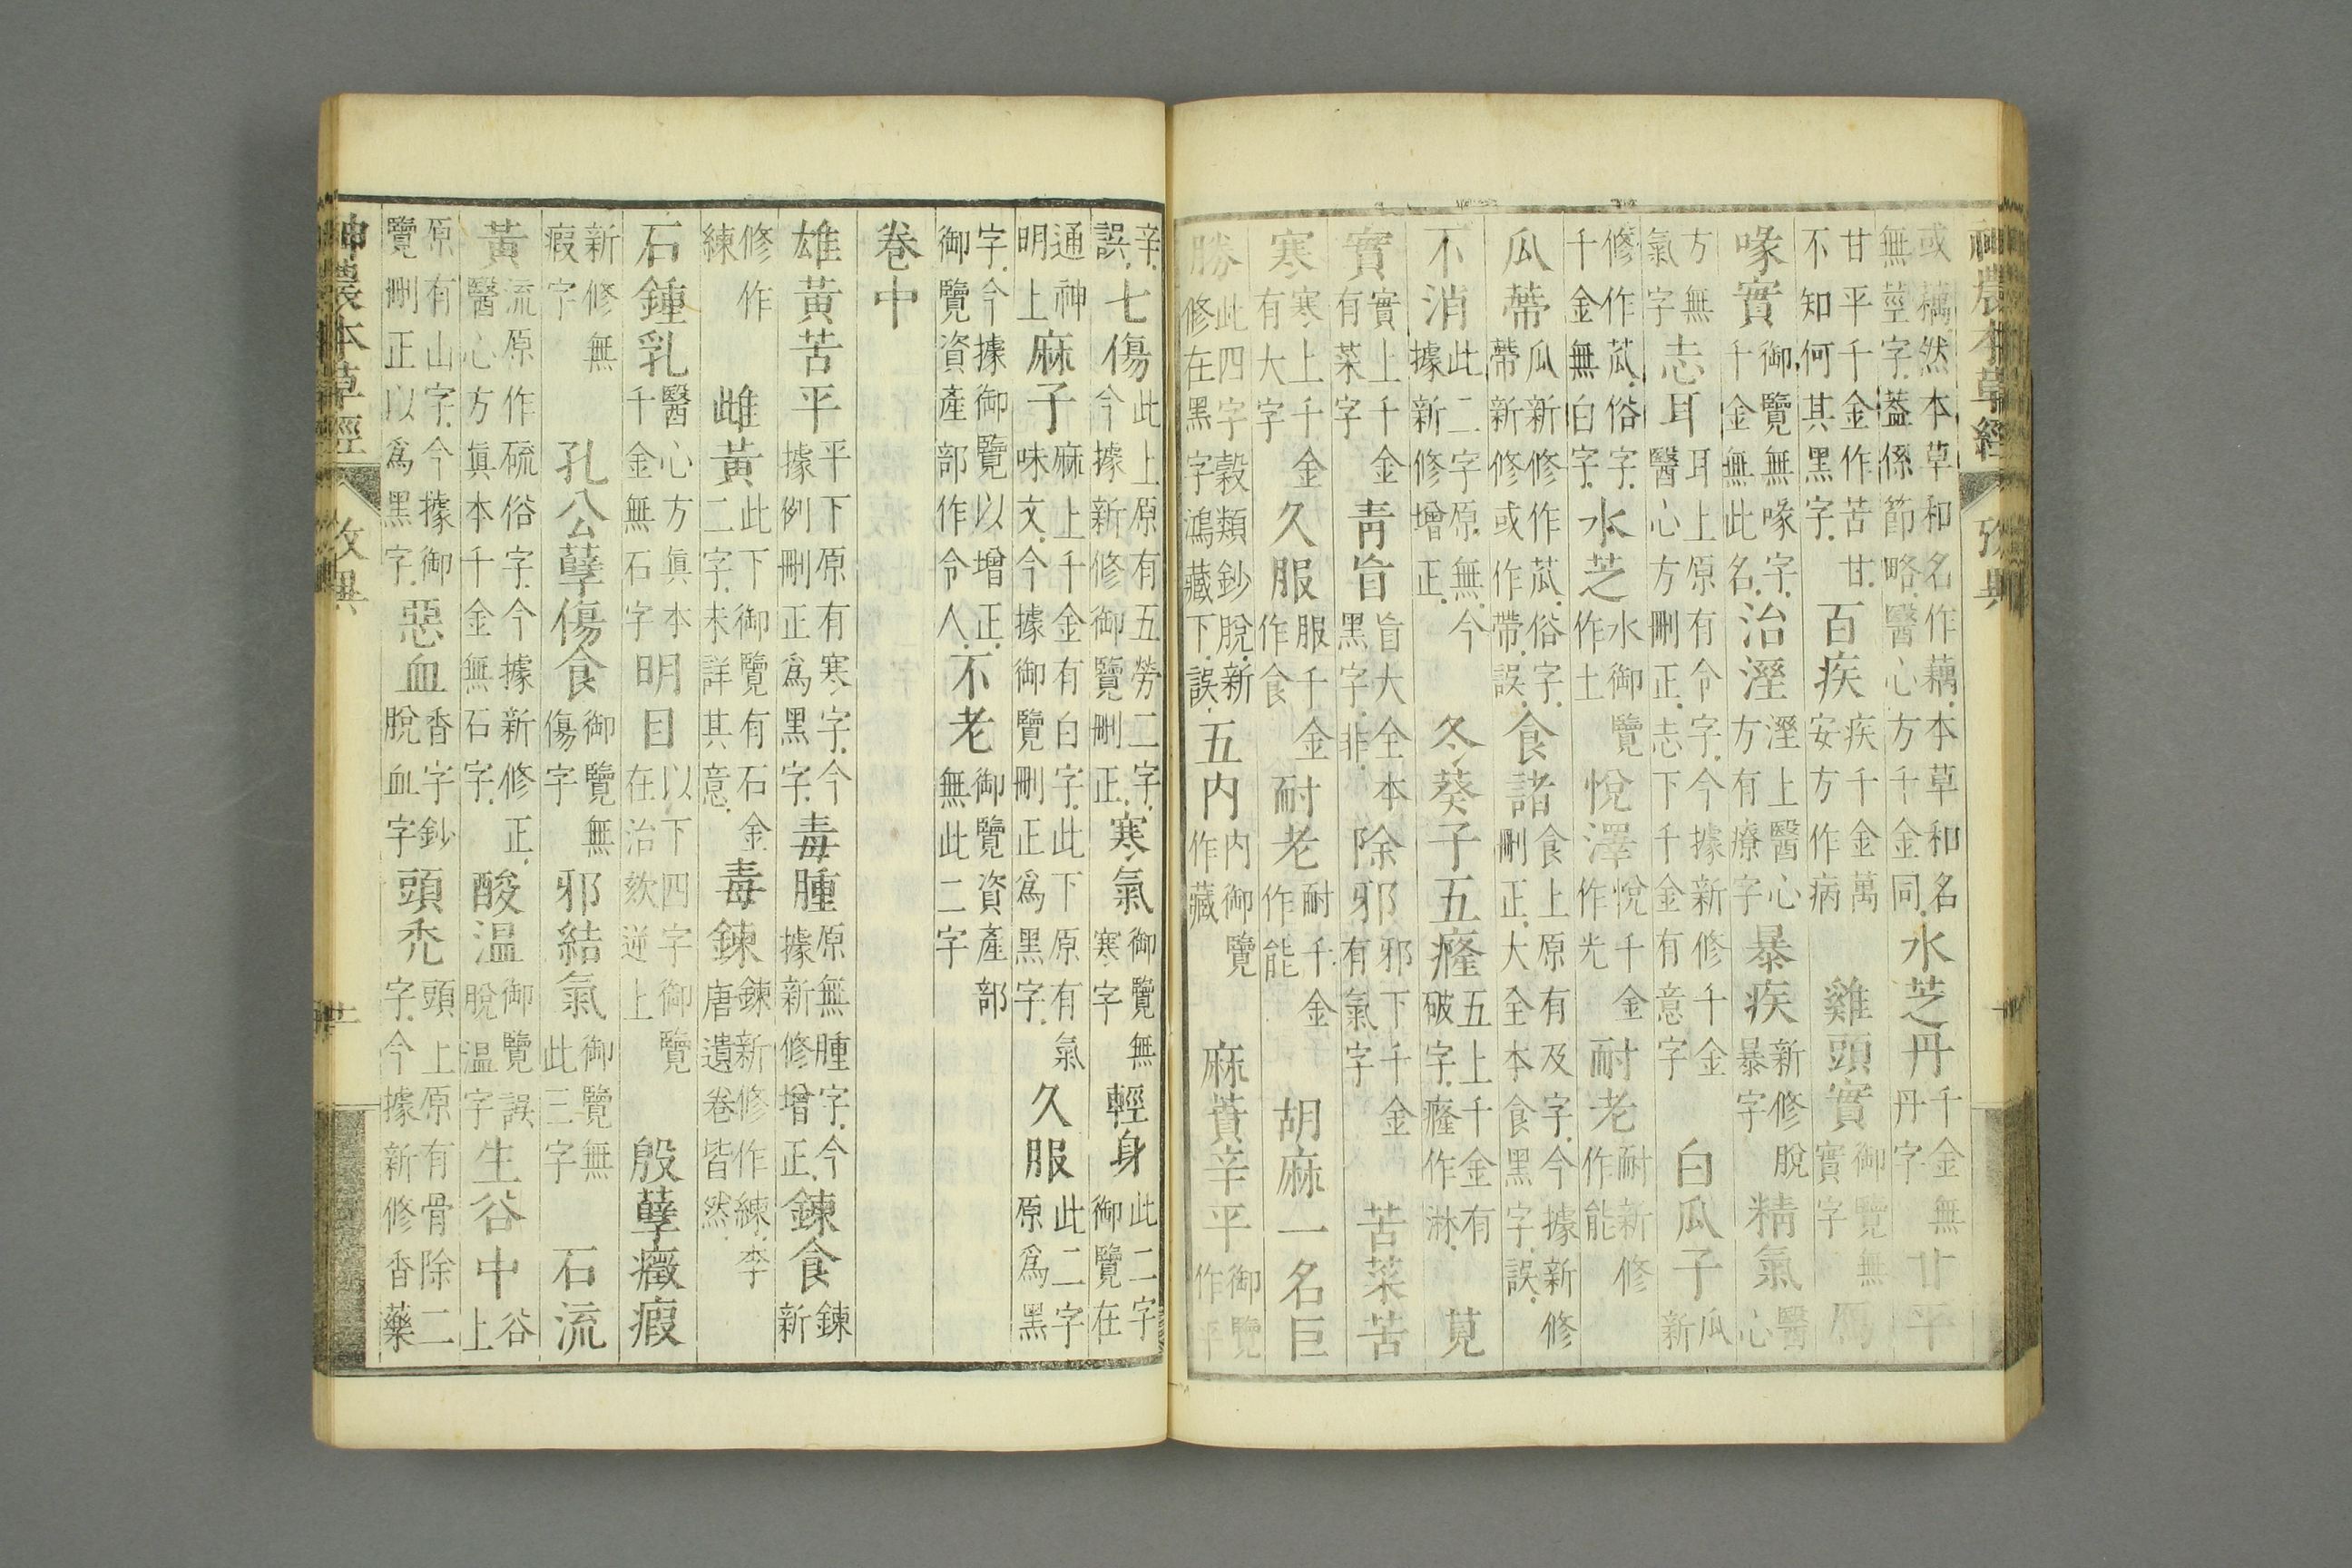 神農本草經 攷異
或藕。然本草和名作藕。本草和名無莖字。蓋係節略。醫心方千金同。水芝丹千金無丹字甘平
甘平千金作苦甘。不知何其黑字。百疾疾千金萬安方作病雞頭實御覽無實字鴈
喙實御覽無喙字。千金無此名。治溼溼上醫心方有療字暴疾新修脫暴字精氣醫心
方無氣字志耳耳上原有令字。今據新修千金醫心方刪正。志下千金有意字白瓜子瓜新
修作苽。俗字。千金無白字。水芝水御覽作土悅澤悅千金作光耐老耐新修作能
瓜蔕瓜新修作苽。俗字。蔕新修或作帶。誤。食諸食上原有及字。今據新修刪正。大全本食黑字。誤。
不消此二字原無。今據新修增正。冬葵子五癃五上千金有破字。癃作淋。莧
實實上千金有菜字青盲盲大全本黑字。非。除邪邪下千金有氣字苦菜苦
寒寒上千金有大字久服服千金作食耐老耐千金作能胡麻一名巨
勝此四字穀類鈔脫。新修在黑字鴻藏下。誤。五内内御覽作藏麻蕡辛平御覽作平
辛。誤。七傷此上原有五勞二字。今據新修御覽刪正。寒氣御覽無寒字輕身此二字御覽在
通神明上麻子麻上千金有白字。此下原有氣味文。今據御覽刪正爲黑字。久服此二字原爲黑
字。今據御覽以增正。御覽資產部作令人。不老御覽資產部無此二字
卷中
雄黃苦平平下原有寒字。今據例刪正爲黑字。毒腫原無腫字。今據新修增正。鍊食鍊新
修作練雌黃此下御覽有石金二字。未詳其意。毒鍊鍊新修作練。李唐遺卷皆然。
石鍾乳醫心方真本千金無石字明目以下四字御覽在治欬逆上殷孽癥瘕
新修無瘕字孔公孽傷食御覽無傷字邪結氣御覽無此三字石流
黃流原作硫。俗字。今據新修正。醫心方真本千金無石字。酸温御覽誤脫温字生谷中谷上
原有山字。今據御覽刪正以爲黑字。惡血香字鈔脫血字頭禿頭上原有骨除二字。今據新修香藥
神農本草經 攷異